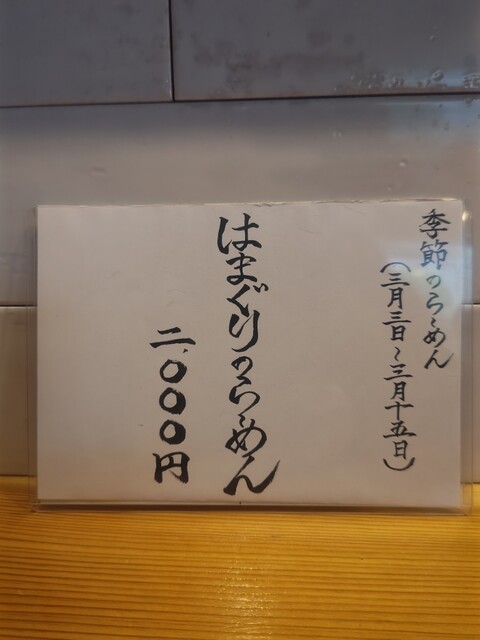 季節のらーめん
(三月三日~三月十五日)
はまぐりのらーめん
二、〇〇〇円